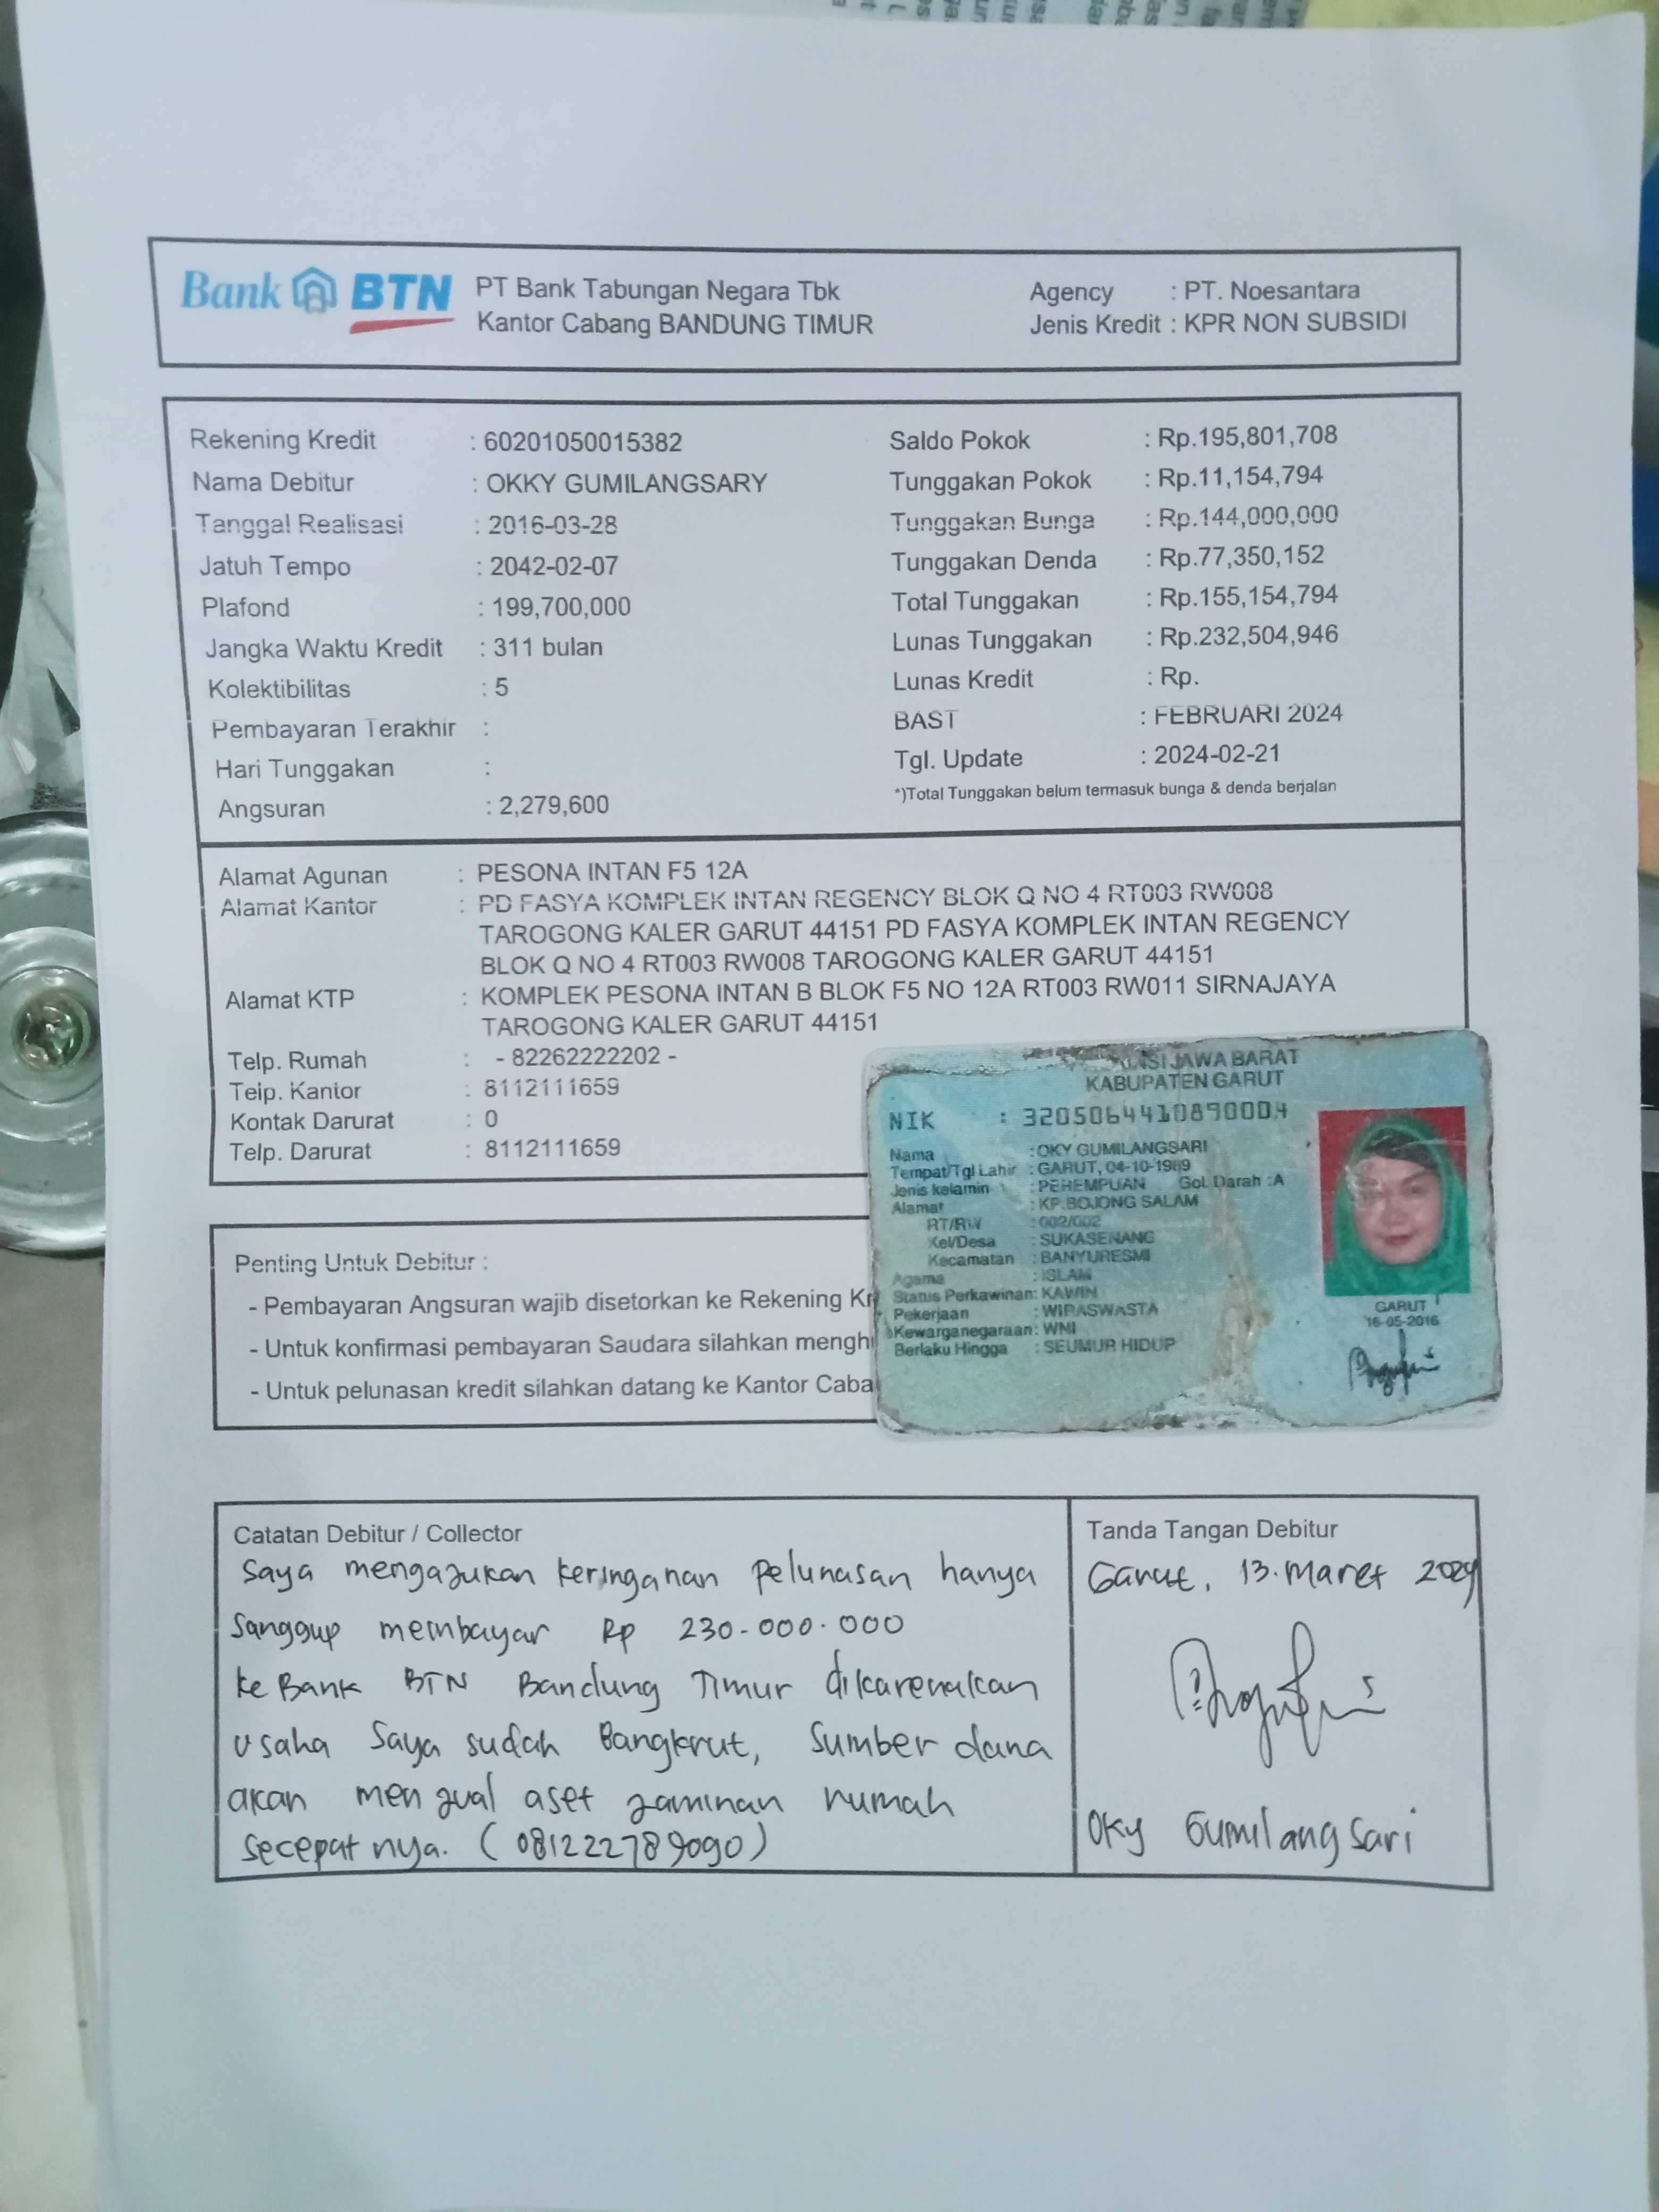 Bank BTN PT Bank Tabungan Negara Tbk
Kantor Cabang BANDUNG TIMUR
Agency : PT. Noesantara
Jenis Kredit : KPR NON SUBSIDI
Rekening Kredit : 60201050015382
Nama Debitur : OKKY GUMILANGSARY
Tanggal Realisasi : 2016-03-28
Jatuh Tempo : 2042-02-07
Plafond : 199,700,000
Jangka Waktu Kredit : 311 bulan
Kolektibilitas : 5
Pembayaran Terakhir :
Hari Tunggakan :
Angsuran : 2,279,600
Saldo Pokok : Rp.195,801,708
Tunggakan Pokok : Rp.11,154,794
Tunggakan Bunga : Rp.144,000,000
Tunggakan Denda : Rp.77,350,152
Total Tunggakan : Rp.155,154,794
Lunas Tunggakan : Rp.232,504,946
Lunas Kredit : Rp.
BAST : FEBRUARI 2024
Tgl. Update : 2024-02-21
*)Total Tunggakan belum termasuk bunga & denda berjalan
Alamat Agunan : PESONA INTAN F5 12A
Alamat Kantor : PD FASYA KOMPLEK INTAN REGENCY BLOK Q NO 4 RT003 RW008
TAROGONG KALER GARUT 44151 PD FASYA KOMPLEK INTAN REGENCY
BLOK Q NO 4 RT003 RW008 TAROGONG KALER GARUT 44151
Alamat KTP : KOMPLEK PESONA INTAN B BLOK F5 NO 12A RT003 RW011 SIRNAJAYA
TAROGONG KALER GARUT 44151
Telp. Rumah : - 82262222202 -
Telp. Kantor : 8112111659
Kontak Darurat : 0
Telp. Darurat : 8112111659
JAWA BARAT
KABUPATEN GARUT
NIK : 3205064410890004
Nama : OKY GUMILANGSARI
Tempat/Tgl Lahir : GARUT, 04-10-1989
Jenis kelamin : PEREMPUAN Gol. Darah :A
Alamat : KP.BOJONG SALAM
RT/RW : 002/002
Kel/Desa : SUKASENANG
Kecamatan : BANYURESMI
Agama : ISLAM
Status Perkawinan: KAWIN
Pekerjaan : WIRASWASTA
Kewarganegaraan: WNI
Berlaku Hingga : SEUMUR HIDUP
GARUT
16-05-2016
Penting Untuk Debitur :
- Pembayaran Angsuran wajib disetorkan ke Rekening Kr
- Untuk konfirmasi pembayaran Saudara silahkan mengh
- Untuk pelunasan kredit silahkan datang ke Kantor Caba
Catatan Debitur / Collector
Saya mengajukan keringanan pelunasan hanya
sanggup membayar Rp 230.000.000
ke Bank BTN Bandung Timur dikarenakan
usaha saya sudah Bangkrut, sumber dana
akan menjual aset jaminan rumah
secepatnya. (081222789090)
Tanda Tangan Debitur
Garut, 13. Maret 2024
Oky Gumilangsari